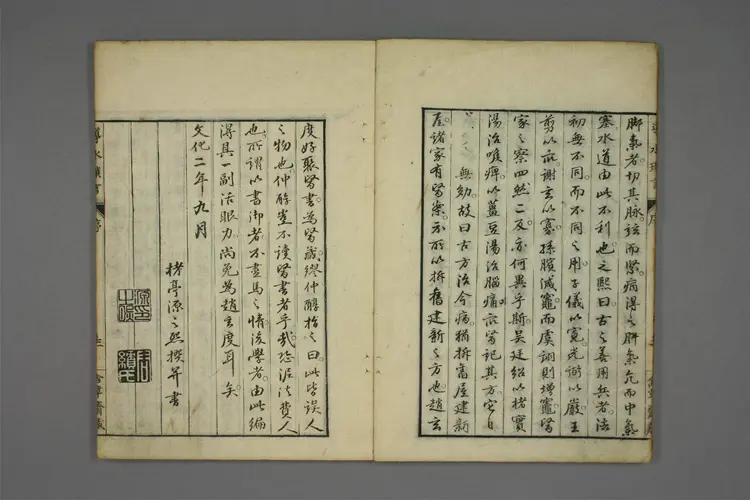 脚氣者切其脉。弦而緊。病得之肝氣亢而中氣
塞水道由此不利也。之熙曰。古之善用兵者。法
初無不同。而不同之用。子儀以寛。光弼以嚴。王
剪以
謝玄以寡。孫臏減竈。而虞詡則增竈。醫
家之察四
然二
及
何異乎斯。吳廷紹以楮實
湯治喉痺。以薑豆湯治腦痛。
其方。它日
無効。故曰。古方治今病。猶拆舊屋建新
屋。諸家有醫案。示所以拆舊建新之方也。趙玄
度好聚醫書為醫誤。繆仲醇指之曰。此皆誤人
之物也。仲醇豈不讀醫書者乎哉。恐泥法費人
也。所謂以書御者。不盡馬之情。後學者。由此編
得具一副活眼力。尚免為趙玄度耳矣。
文化二年九月
楮亭源之熙撰并書
導水瑣言
序